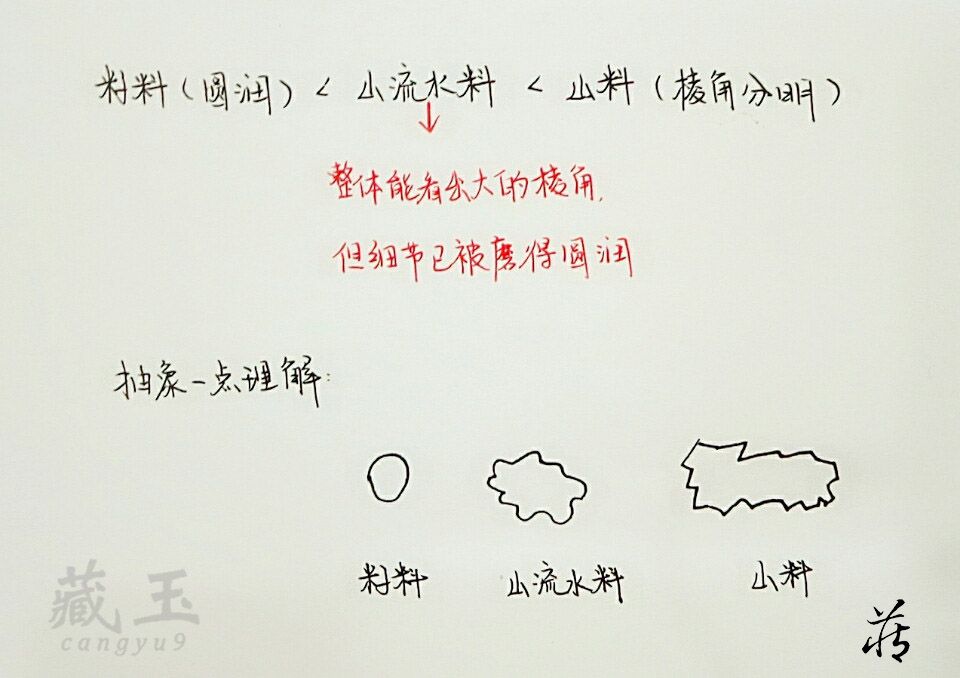 籽料(圆润) < 山流水料 < 山料(棱角分明)
整体能看出大的棱角,
但细节已被磨得圆润
抽象一点理解:
籽料 山流水料 山料
藏玉
cangyu9